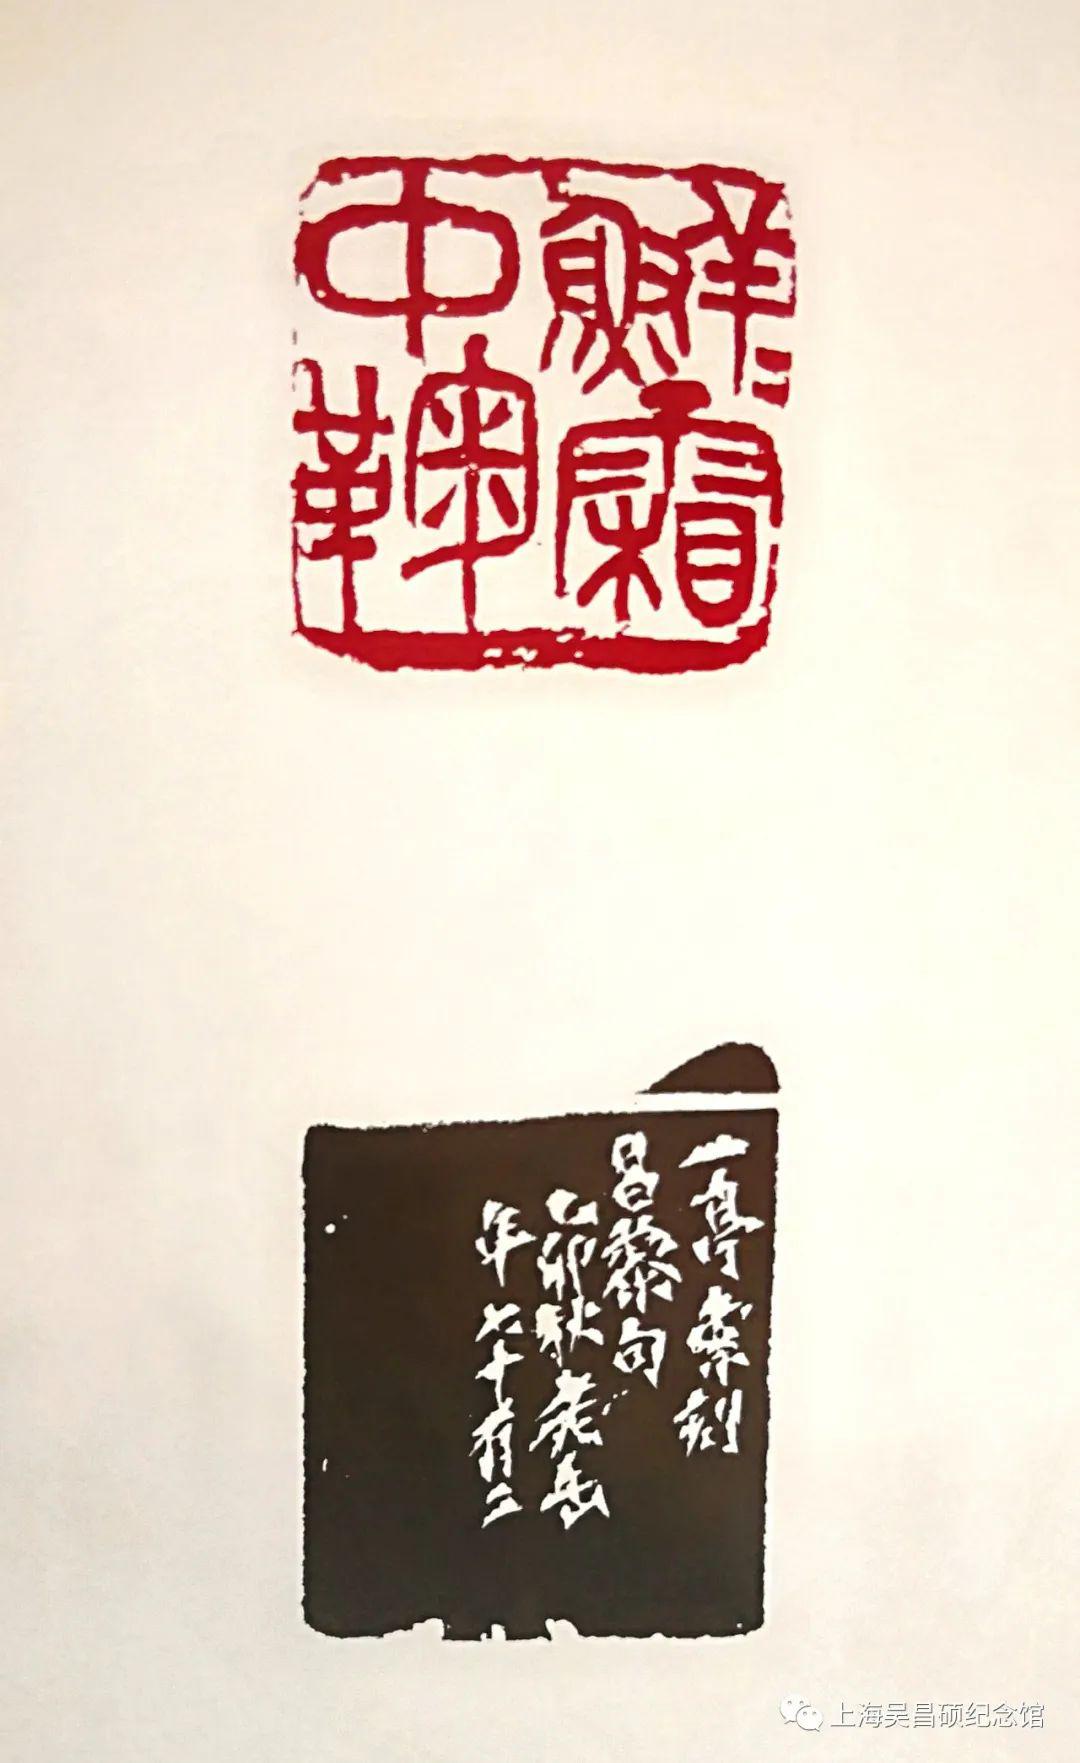 鮮〻霜
中鞠
一亭索刻
昌黎句
乙卯秋老缶
年七十有二
上海吴昌硕纪念馆